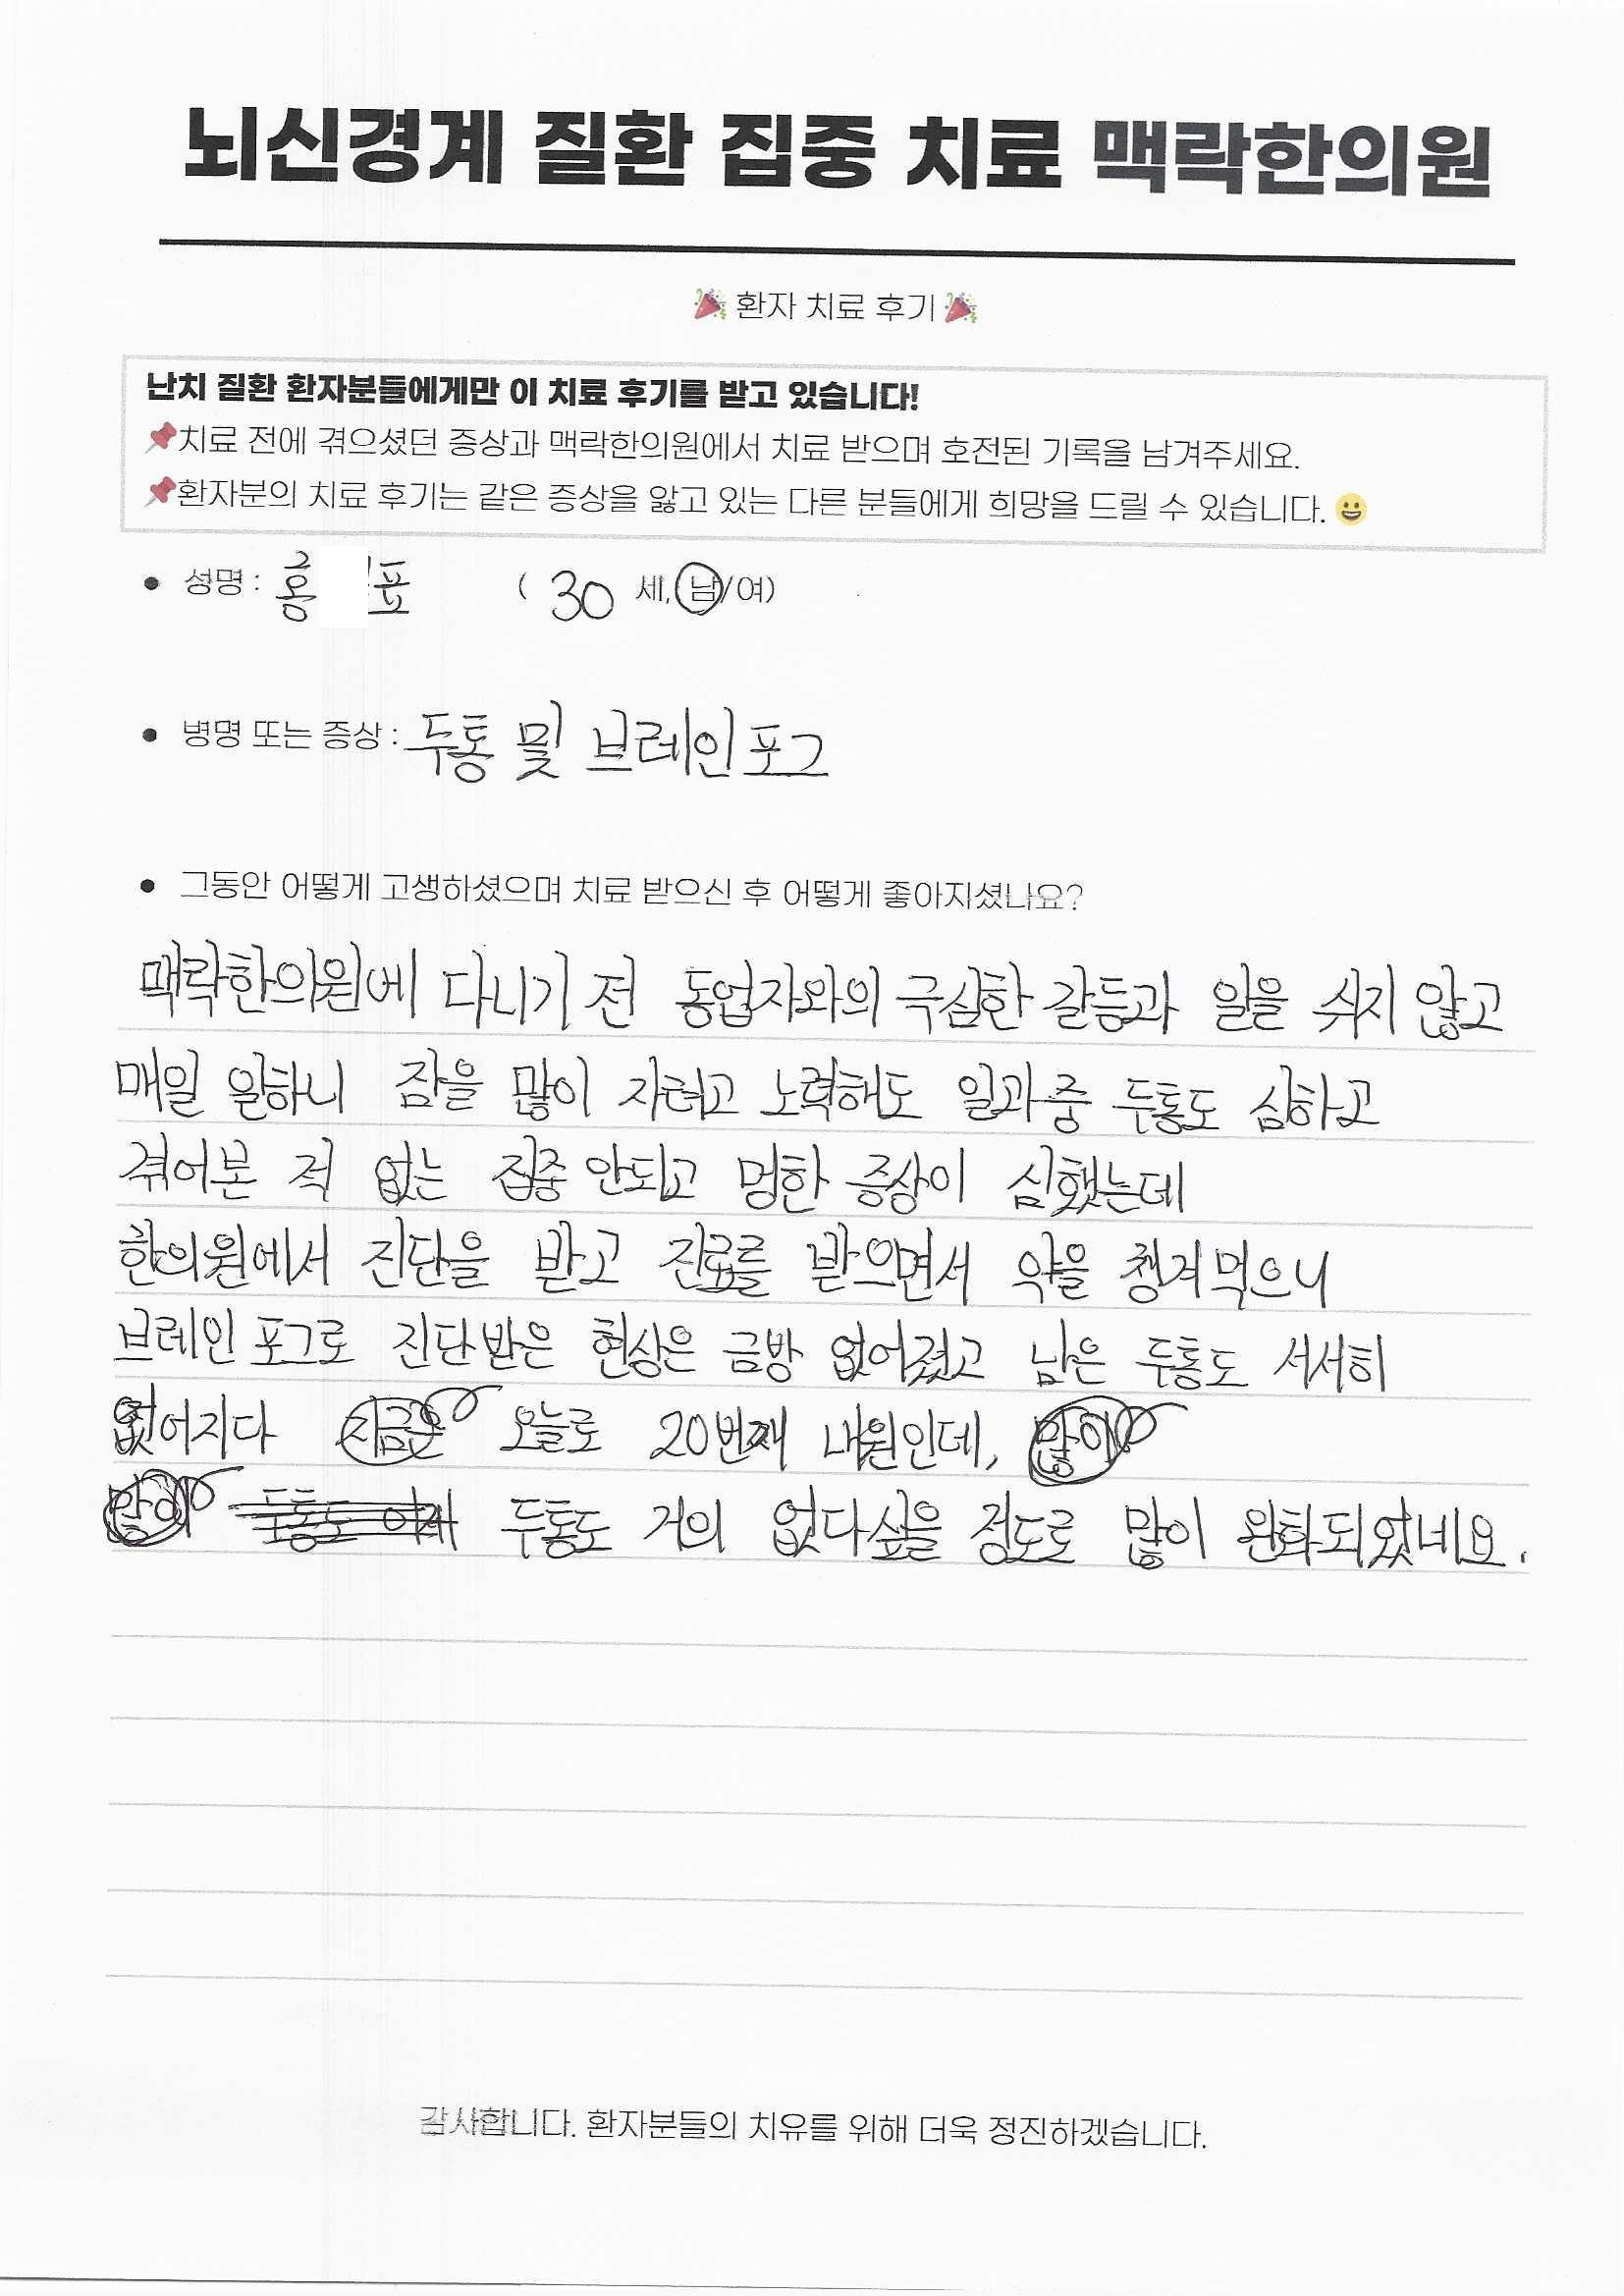 뇌신경계 질환 집중 치료 맥락한의원
🎉 환자 치료 후기 🎉
난치 질환 환자분들에게만 이 치료 후기를 받고 있습니다!
📌치료 전에 겪으셨던 증상과 맥락한의원에서 치료 받으며 호전된 기록을 남겨주세요.
📌환자분의 치료 후기는 같은 증상을 앓고 있는 다른 분들에게 희망을 드릴 수 있습니다. 😀
• 성명 : 홍 표 ( 30 세, 남/여)
• 병명 또는 증상 : 두통 및 브레인포그
• 그동안 어떻게 고생하셨으며 치료 받으신 후 어떻게 좋아지셨나요?
맥락한의원에 다니기 전 동업자와의 극심한 갈등과 일을 쉬지 않고
매일 일하니 잠을 많이 자려고 노력해도 일과중 두통도 심하고
겪어본 적 없는 집중 안되고 멍한 증상이 심했는데
한의원에서 진단을 받고 진료를 받으면서 약을 챙겨먹으니
브레인 포그로 진단받은 현상은 금방 없어졌고 남은 두통도 서서히
없어지다 지금은 오늘로 20번째 내원인데, 많이
많이 두통도 이제 두통도 거의 없다싶을 정도로 많이 완화되었네요.
감사합니다. 환자분들의 치유를 위해 더욱 정진하겠습니다.